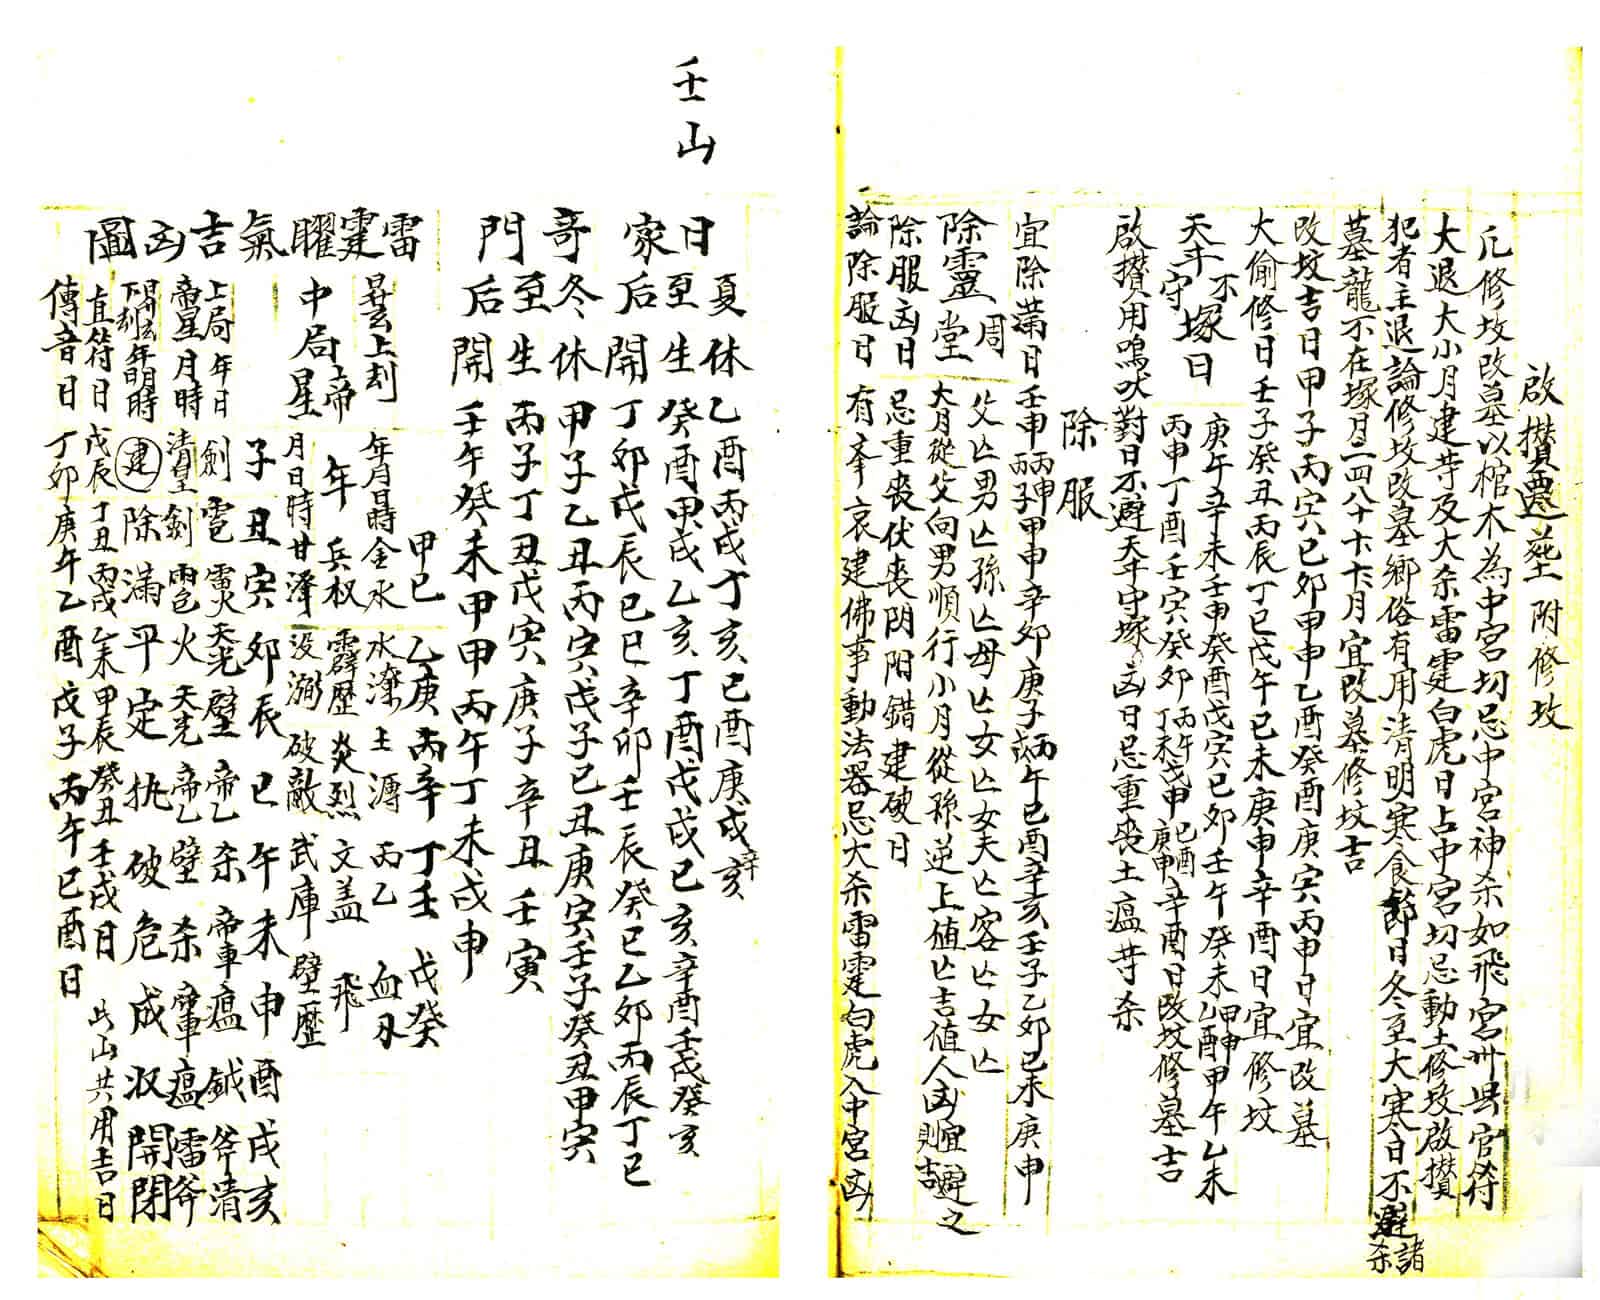 啟攢遷塟附修坟
凢修坟改墓以棺木為中宮切忌中宮神杀如飛宮州县官符
大退大小月建等及大杀雷霆白虎日占中宮切忌動土修坟啟攢
犯者主退論修坟改墓鄉俗有用清明寒食節日冬至大寒日不避諸杀
墓龍不在塚月二四八十月宜改墓修坟吉
改坟吉日甲子丙寅己卯甲申乙酉癸酉庚寅丙申日宜改墓
大偷修日壬子癸丑丙辰丁巳戊午己未庚申辛酉日宜修坟
天牛不守塚日
庚午辛未壬申癸酉戊寅己卯壬午癸未甲申乙酉甲午乙未
丙申丁酉壬寅癸卯丙午丁未戊申己酉庚申辛酉日改坟修墓吉
啟攢用鳴吠對日不避天牛守塚凶日忌重喪土瘟等杀
除服
宜除滿日壬申丙子丙申甲申辛卯庚子丙午己酉辛亥壬子乙卯己未庚申
除靈周堂
父亡男亡孫亡母亡女亡女夫亡客亡女亡
大月從父向男順行小月從孫逆上值亡吉值人凶宜避之則吉
除服凶日 忌重喪伏喪阴阳錯建破日
論除服日 有奉哀建佛事動法器忌大杀雷霆白虎入中宮凶
壬山
日家奇門
夏至后
休 乙酉丙戌丁亥己酉庚戌辛亥
生 癸酉甲戌乙亥丁酉戊戌己亥辛酉壬戌癸亥
開 丁卯戊辰己巳辛卯壬辰癸巳乙卯丙辰丁巳
冬至后
休 甲子乙丑丙寅戊子己丑庚寅壬子癸丑甲寅
生 丙子丁丑戊寅庚子辛丑壬寅
開 壬午癸未甲申丙午丁未戊申
雷霆曜氣吉凶圖
甲己 乙庚 丙辛 丁壬 戊癸
昇玄上刦 年月日時 金水 水潦 土溽 丙乙 血刃
中局帝星 年 兵权 霹歷 炎烈 文盖 飛
月日時 甘澤 没溺 破敵 武庫 壁歷
子丑寅卯辰巳午未申酉戌亥
上局年日
帝星月時
建除滿平定执破危成收開閉
直符日 戊辰丁丑丙戌乙未甲辰癸丑壬戌日 此山共用吉日
傳音日 丁卯庚午乙酉戊子丙午己酉日